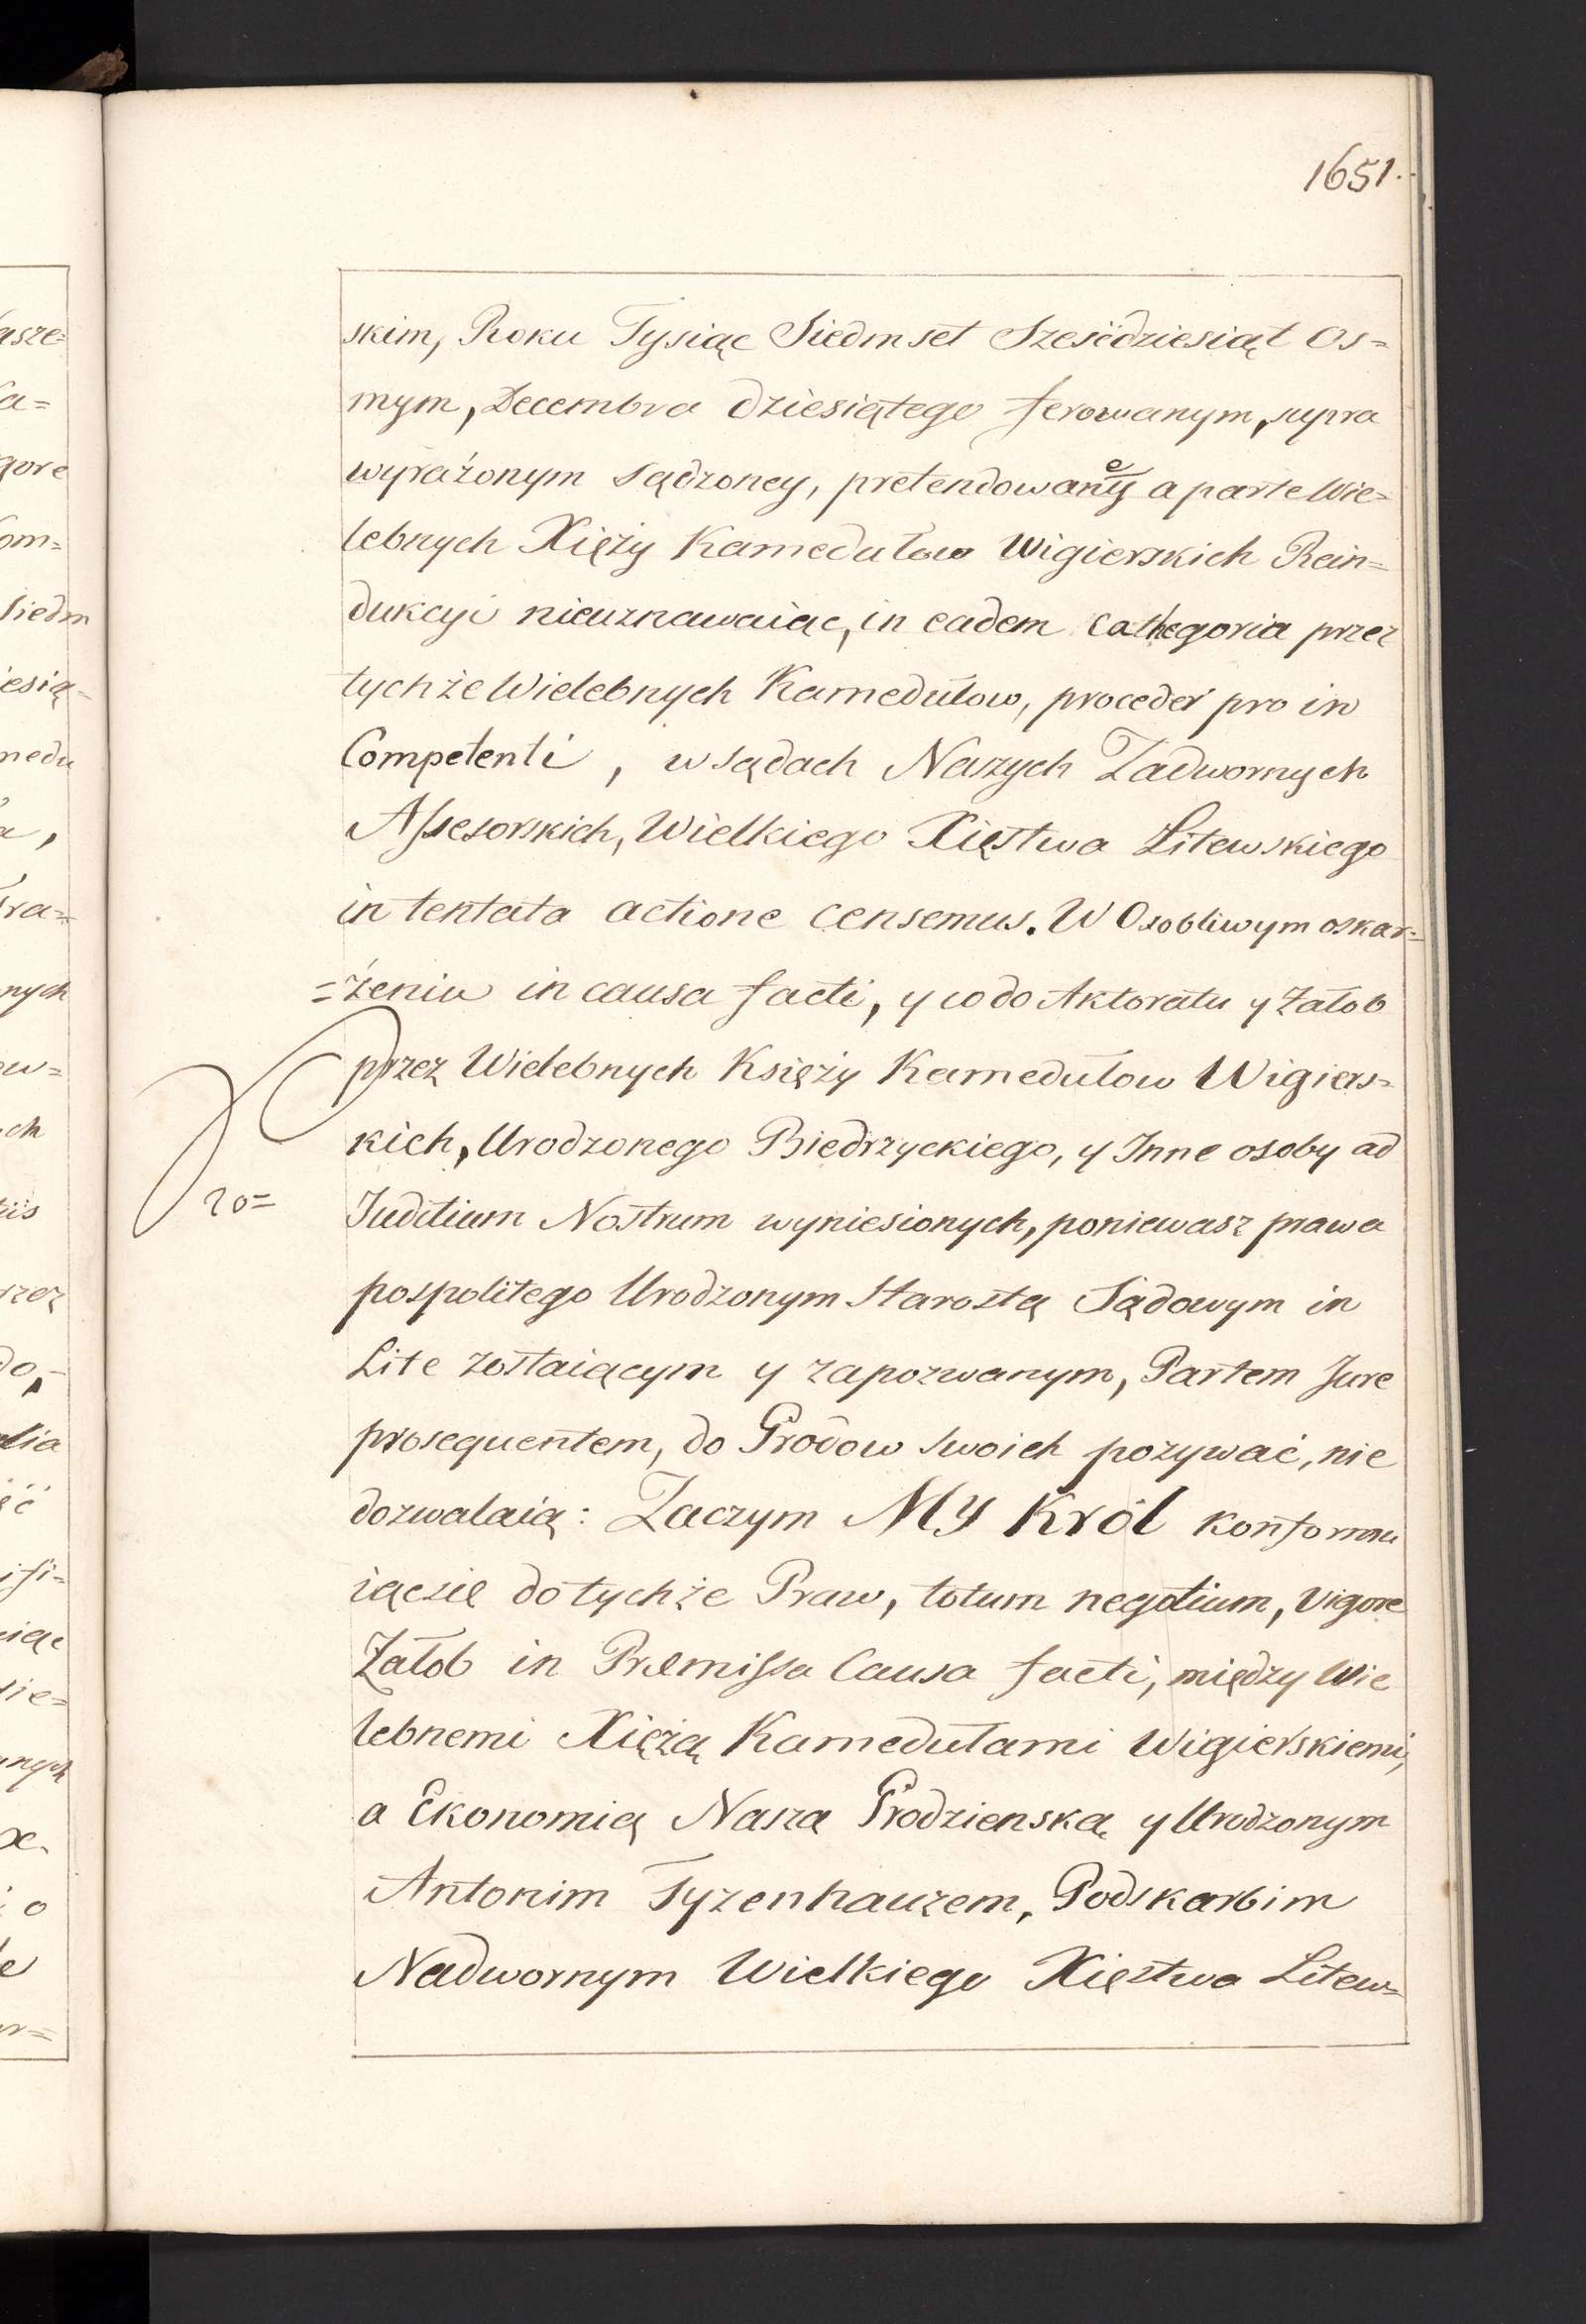 1651.
skim, Roku Tysiąc Siedmset Sześćdziesiąt Os=
mym, Decembra dziesiątego ferowanym, supra
wyrażonym sądzoney, pretendowaney a parte Wie=
lebnych Xięży Kamedułow Wigierskich Rein=
dukcyi nieuznawaiąc, in eadem cathegoria przez
tychże Wielebnych Kamedułow, proceder pro in
Competenti, w sądach Naszych Zadwornych
Assesorskich, Wielkiego Xięstwa Litewskiego
in tentata actione censemus. W Osobliwym oskar=
=żeniu in causa facti, y co do Aktoratu y Załob
przez Wielebnych Księży Kamedułow Wigiers=
kich, Urodzonego Biedrzyckiego, y Inne osoby ad
20=
Juditium Nostrum wyniesionych, poniewasz prawa
pospolitego Urodzonym Starostą Sądowym in
Lite zostaiącym y zapozwanym, Partem Jure
prosequentem, do Grodow swoich pozywać, nie
dozwalaią: Zaczym MY Król konformu
iącsię do tychże Praw, totum negotium, vigore
Załob in Præmissa Causa facti, między Wie
lebnemi Xiężą Kamedułami Wigierskiemi,
a Ekonomią Naszą Grodzienską y Urodzonym
Antonim Tyzenhauzem, Podskarbim
Nadwornym Wielkiego Xięztwa Litew=